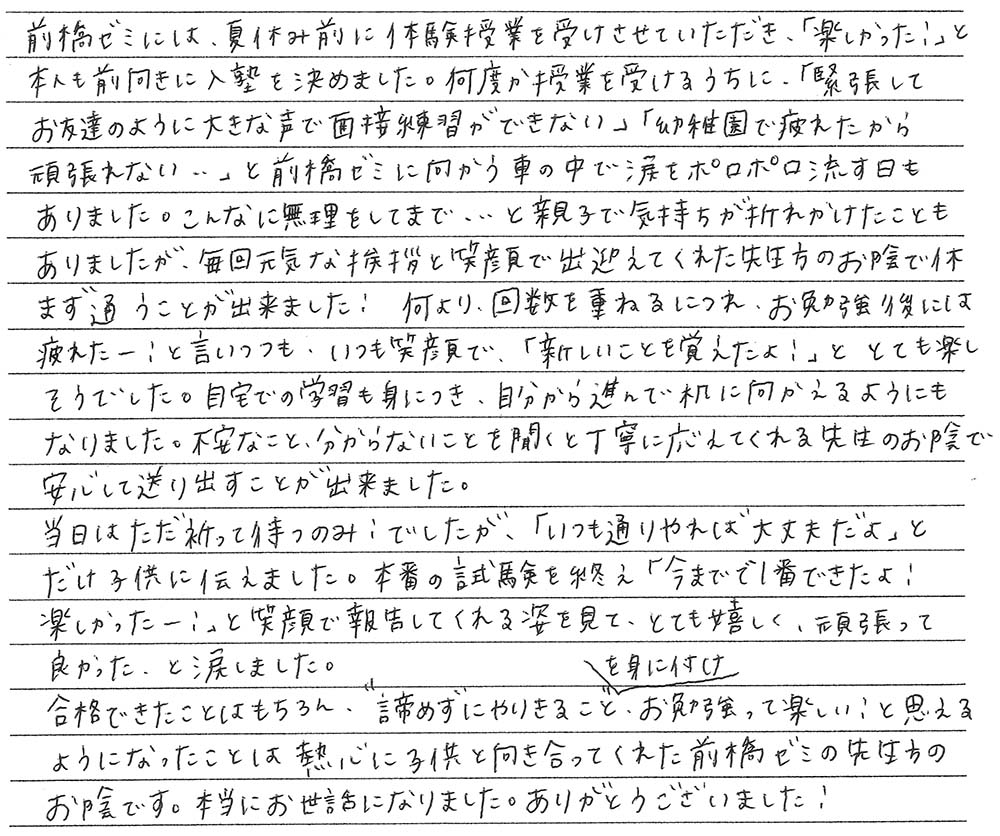 前橋ゼミには、夏休み前に体験授業を受けさせていただき、「楽しかった!」と
本人も前向きに入塾を決めました。何度か授業を受けるうちに、「緊張して
お友達のように大きな声で面接練習ができない」「幼稚園で疲れたから
頑張れない…」と前橋ゼミに向かう車の中で涙をポロポロ流す日も
ありました。こんなに無理をしてまで…と親子で気持ちが折れかけたことも
ありましたが、毎回元気な挨拶と笑顔で出迎えてくれた先生方のお陰で休
まず通うことが出来ました! 何より、回数を重ねるにつれ、お勉強後には
疲れたー!と言いつつも、いつも笑顔で、「新しいことを覚えたよ!」ととても楽し
そうでした。自宅での学習も身につき、自分から進んで机に向かえるようにも
なりました。不安なこと、分からないことを聞くと丁寧に応えてくれる先生のお陰で
安心して送り出すことが出来ました。
当日はただ祈って待つのみ!でしたが、「いつも通りやれば大丈夫だよ」と
だけ子供に伝えました。本番の試験を終え「今までで1番できたよ!
楽しかったー!」と笑顔で報告してくれる姿を見て、とても嬉しく、頑張って
良かった、と涙しました。
を身に付け
合格できたことはもちろん、“諦めずにやりきること”、お勉強って楽しい!と思える
ようになったことは熱心に子供と向き合ってくれた前橋ゼミの先生方の
お陰です。本当にお世話になりました。ありがとうございました!